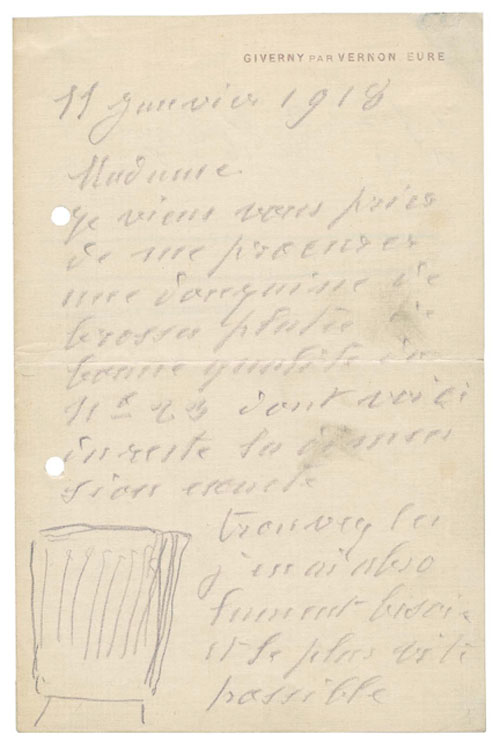 GIVERNY PAR VERNON EURE
11 janvier 1918
Madame
je viens vous prier
de me procurer
une douzaine de
brosses plates de
bonne qualité du
N° 23 dont voici
du reste la dimen
sion exacte
trouvez les
j'en ai abso
lument besoin
et le plus vite
possible